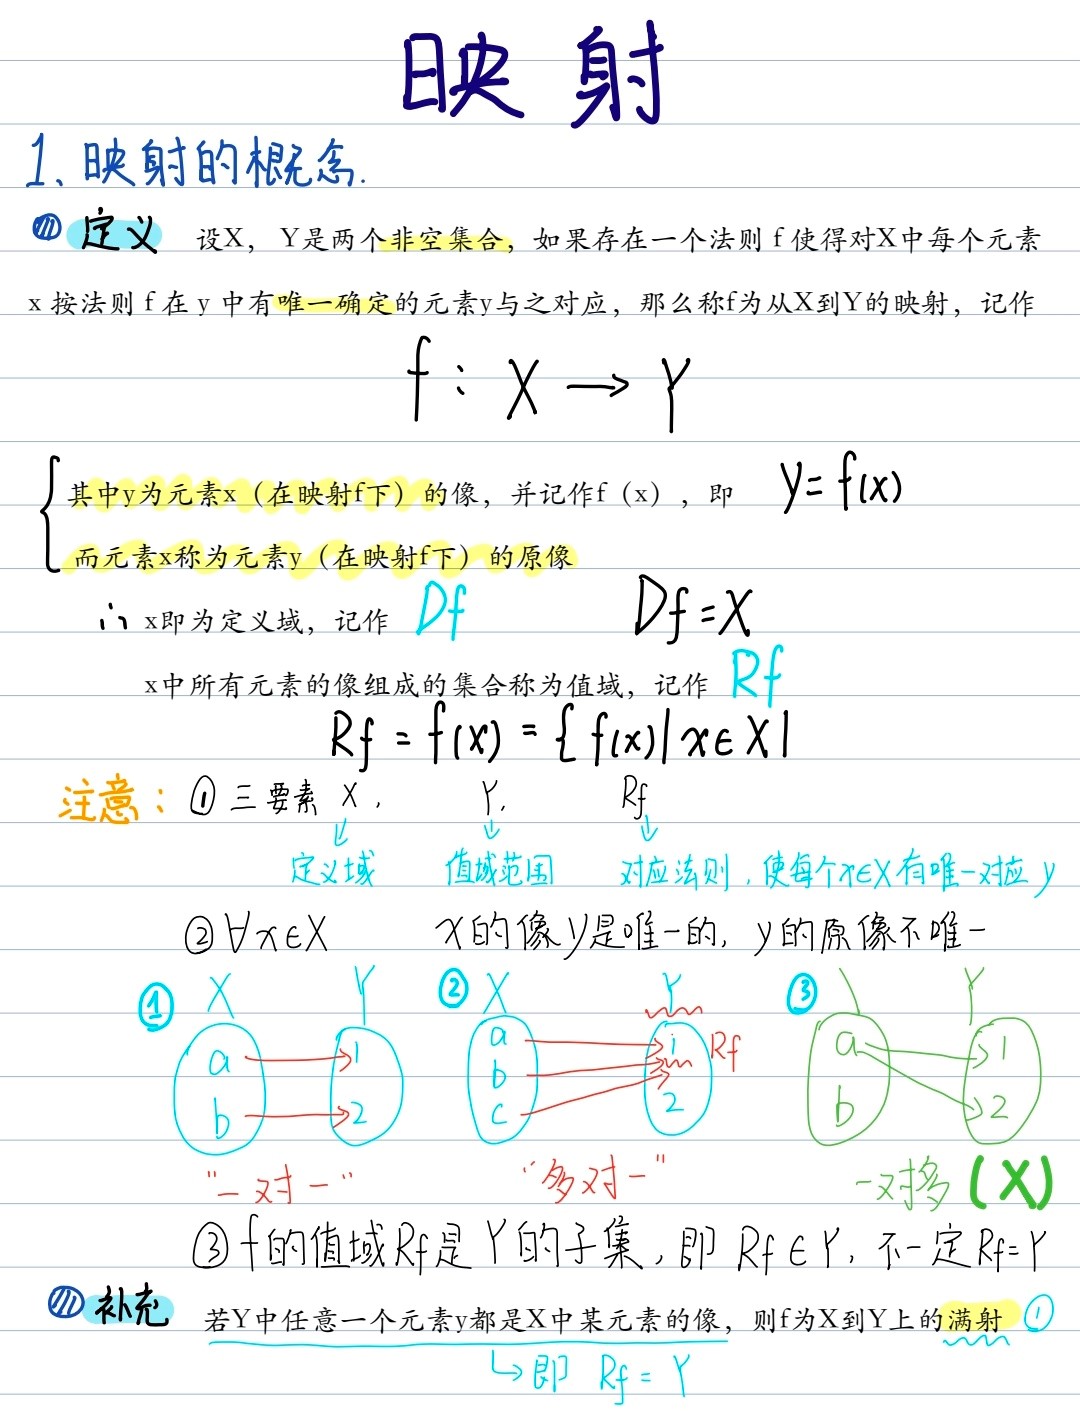 映射
1、映射的概念.
定义 设X，Y是两个非空集合，如果存在一个法则 f 使得对X中每个元素
x 按法则 f 在 y 中有唯一确定的元素y与之对应，那么称f为从X到Y的映射，记作
f : X → Y
其中y为元素x（在映射f下）的像，并记作f（x），即 y=f(x)
而元素x称为元素y（在映射f下）的原像
∴ x即为定义域，记作 Df Df=X
x中所有元素的像组成的集合称为值域，记作 Rf
Rf = f(X) = { f(x)| x∈X |
注意：① 三要素 X, Y, Rf
定义域 值域范围 对应法则，使每个x∈X有唯一对应 y
② ∀x∈X x的像y是唯一的, y的原像不唯一
① X Y ② X Y ③ Y
a 1 a 1 Rf a 1
b 2 b 2 b 2
c
"一对一" "多对一" 一对多 (X)
③ f的值域Rf是Y的子集, 即 Rf∈Y, 不一定Rf=Y
补充 若Y中任意一个元素y都是X中某元素的像，则f为X到Y上的满射 ①
↳即 Rf = Y